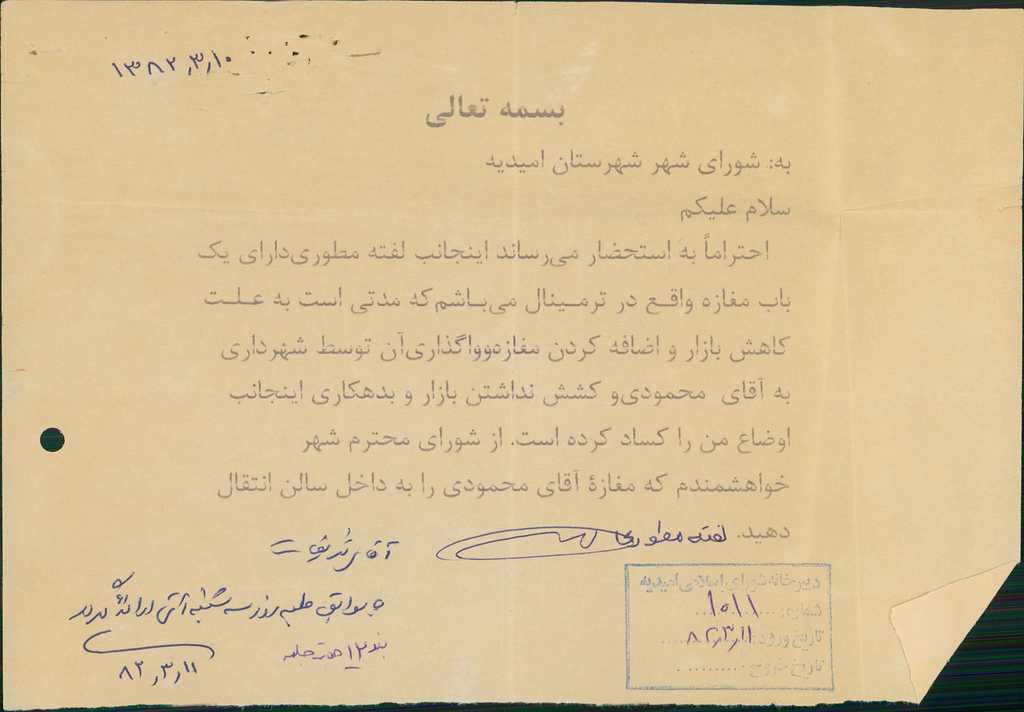 ۱۳۸۲,۳,۱۰
بسمه تعالی
به: شورای شهر شهرستان امیدیه
سلام علیکم
احتراماً به استحضار می‌رساند اینجانب لفته مطوری‌دارای یک
باب مغازه واقع در ترمینال می‌باشم‌که مدتی است به علت
کاهش بازار و اضافه کردن مغازه‌وواگذاری‌آن توسط شهرداری
به آقای محمودی‌و کشش نداشتن بازار و بدهکاری اینجانب
اوضاع من را کساد کرده است. از شورای محترم شهر
خواهشمندم که مغازهٔ آقای محمودی را به داخل سالن انتقال
دهید.
لفته مطوری
آقای شریفات
روز سه شنبه آتی ارائه گردد
بند ۱۲ صورتجلسه
۸۲,۳,۱۱
دبیرخانه شورای اسلامی امیدیه
شماره: ۱۰۱۱
تاریخ ورود: ۸۲,۳,۱۱
تاریخ خروج: